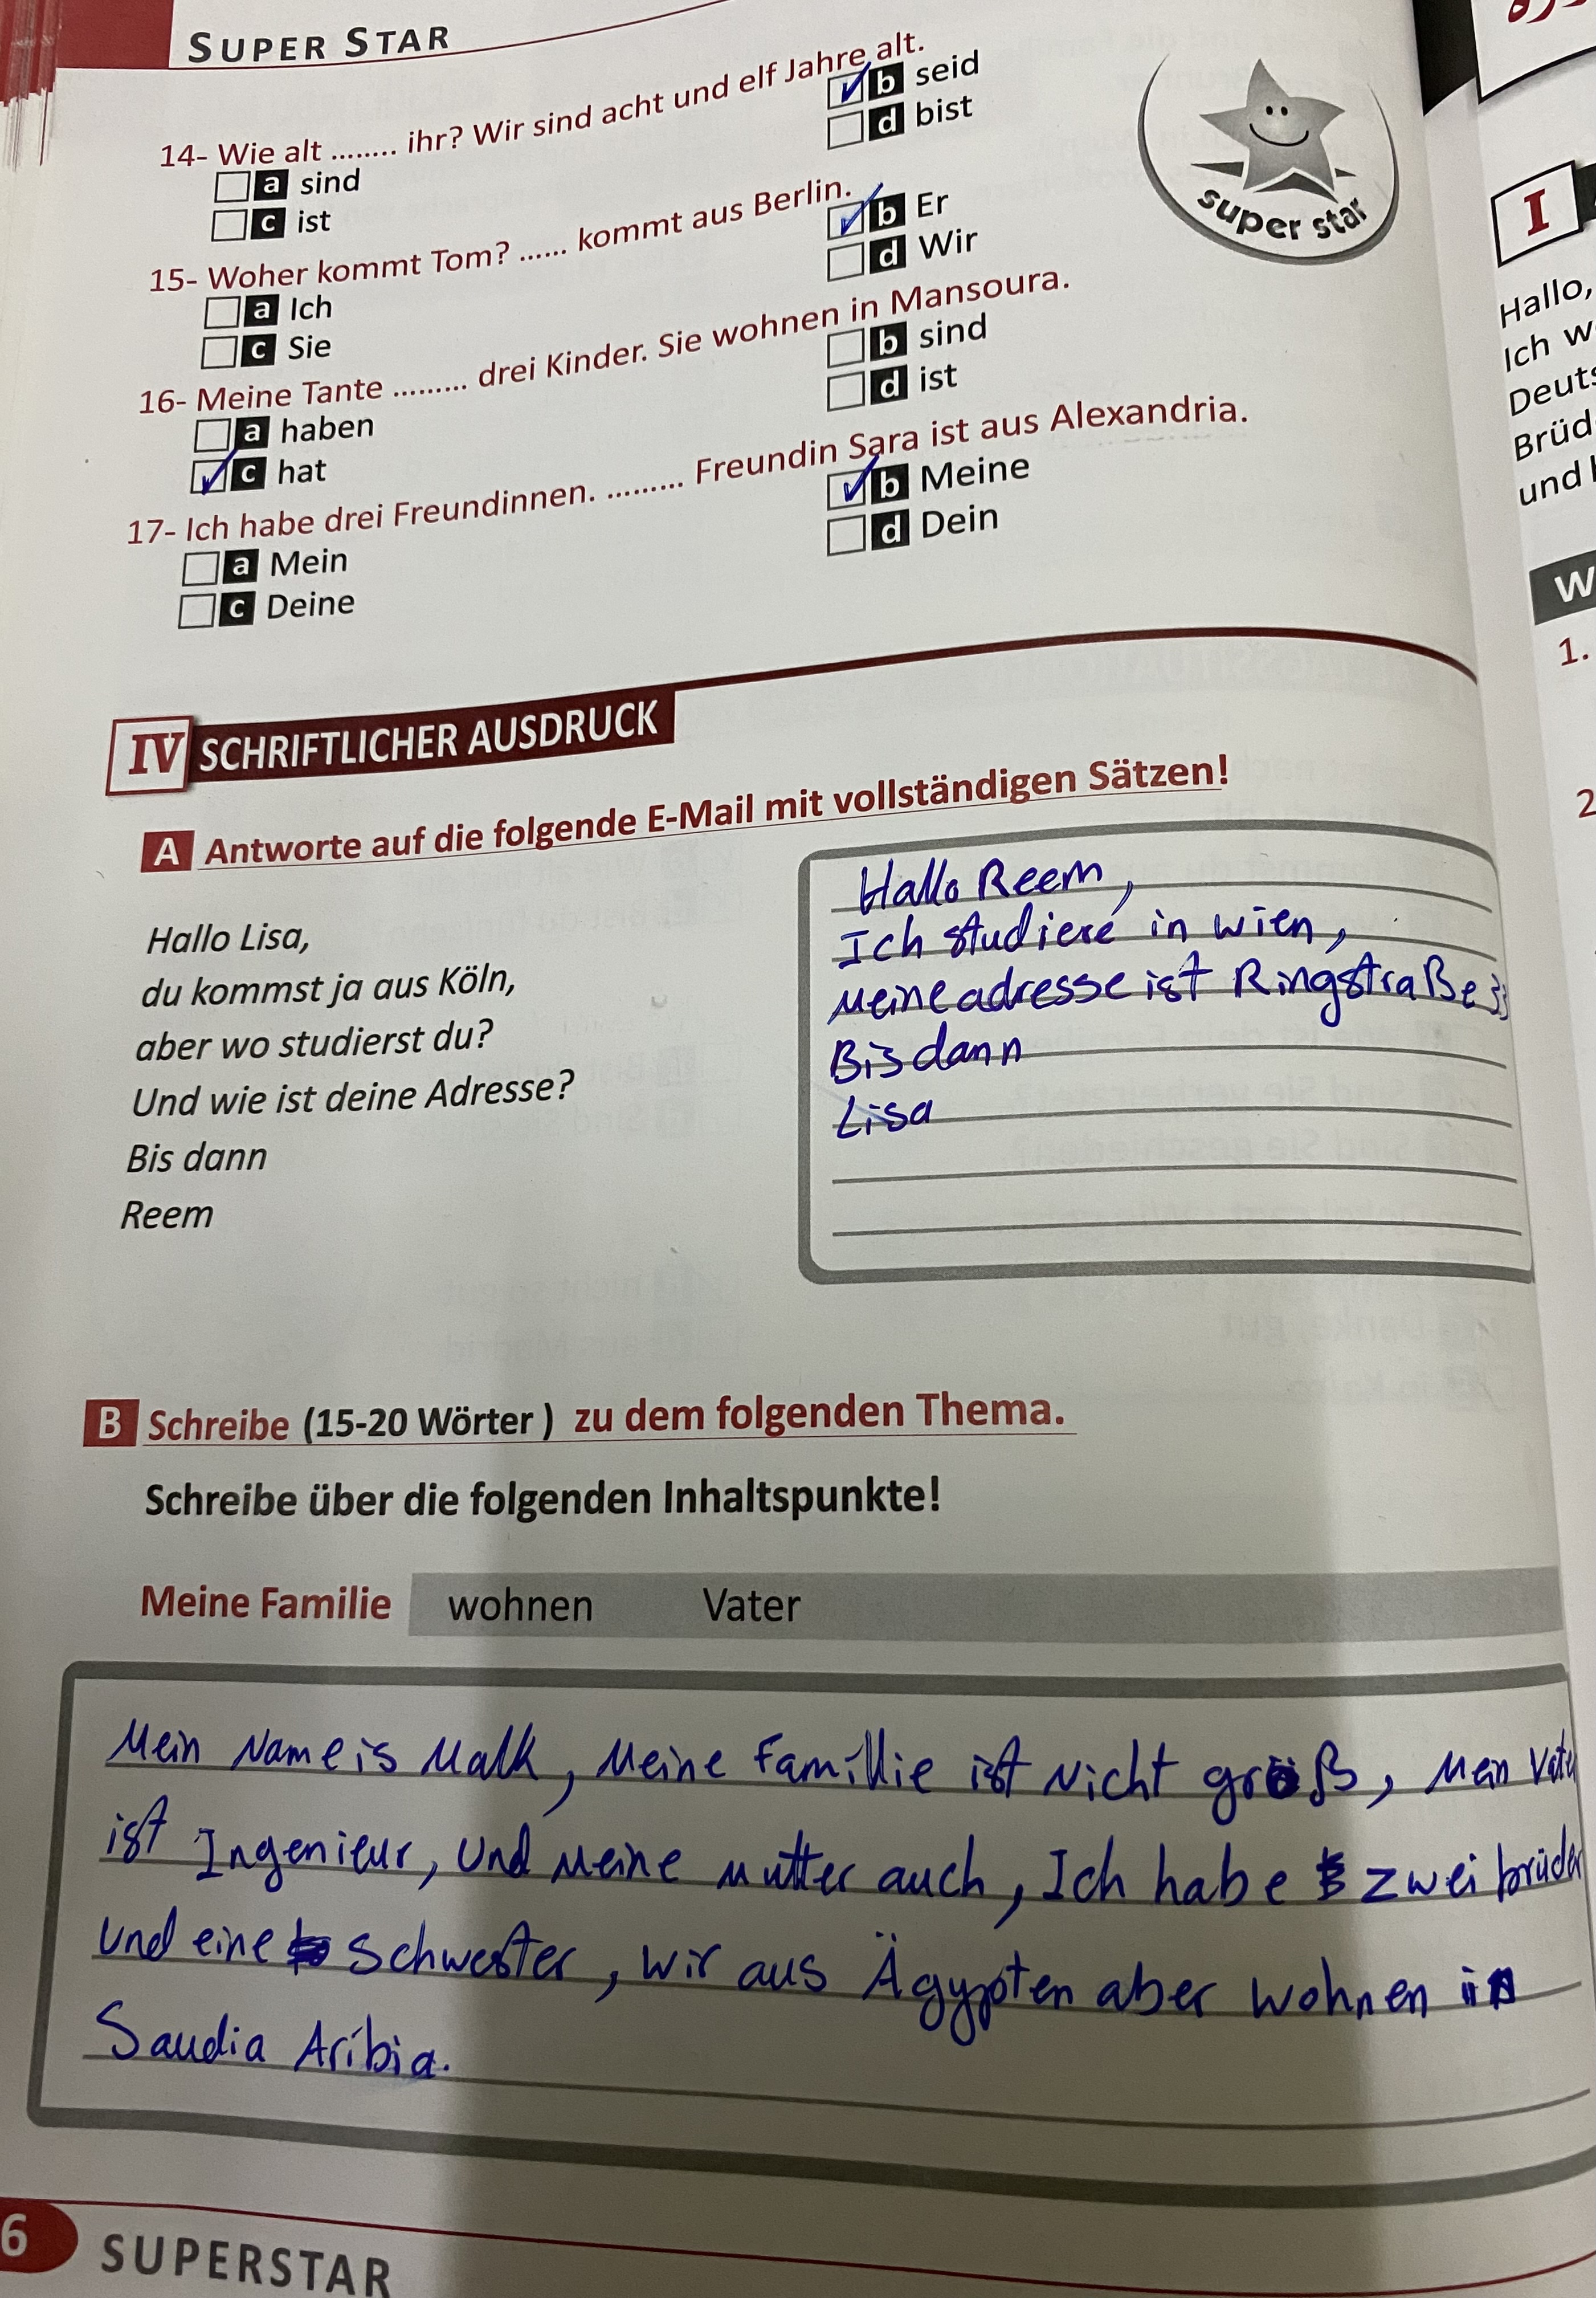 SUPER STAR
14- Wie alt ........ ihr? Wir sind acht und elf Jahre alt.
a sind
b seid
c ist
d bist
15- Woher kommt Tom? ...... kommt aus Berlin.
a Ich
b Er
c Sie
d Wir
16- Meine Tante ......... drei Kinder. Sie wohnen in Mansoura.
a haben
b sind
c hat
d ist
17- Ich habe drei Freundinnen. ......... Freundin Sara ist aus Alexandria.
a Mein
b Meine
c Deine
d Dein
super star
IV SCHRIFTLICHER AUSDRUCK
A Antworte auf die folgende E-Mail mit vollständigen Sätzen!
Hallo Lisa,
du kommst ja aus Köln,
aber wo studierst du?
Und wie ist deine Adresse?
Bis dann
Reem
Hallo Reem,
Ich studiere in wien,
Meine adresse ist Ringstraße
Bis dann
Lisa
B Schreibe (15-20 Wörter ) zu dem folgenden Thema.
Schreibe über die folgenden Inhaltspunkte!
Meine Familie wohnen Vater
Mein Name is Malk, Meine Famillie ist Nicht groß, Mein
ist Ingenieur, Und Meine mutter auch, Ich habe zwei brüder
Und eine Schwester, wir aus Ägypten aber wohnen in
Saudia Aribia.
6 SUPERSTAR
I
Hallo,
Ich
und
1.
2